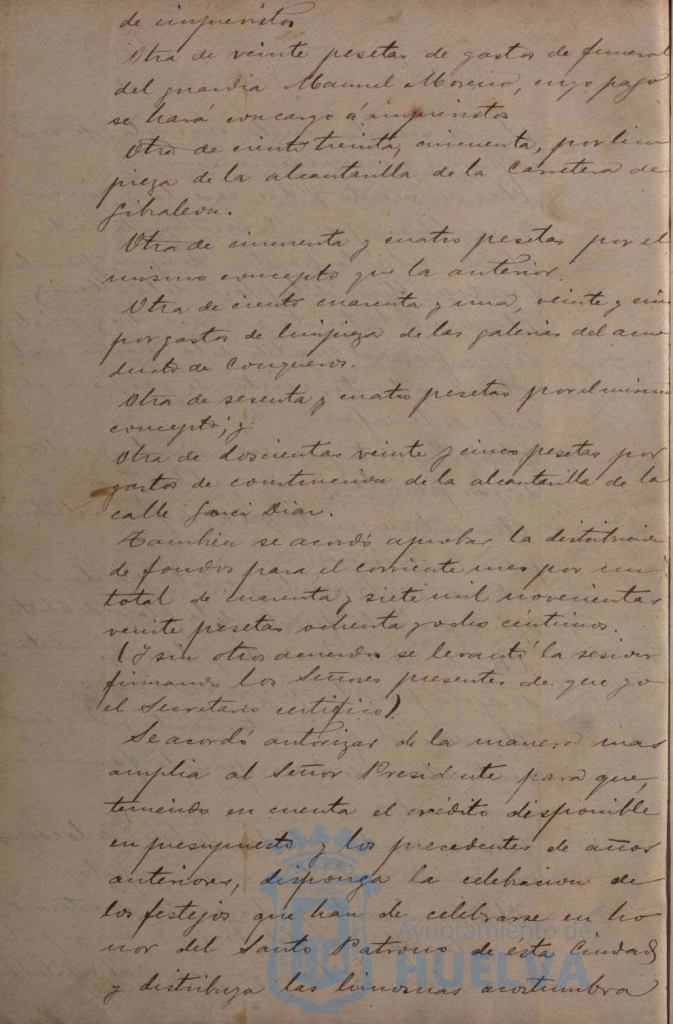 de imprevistos
Otra de veinte pesetas de gastos de funeral
del guardia Manuel Moreno, cuyo pago
se hará con cargo á imprevistos
Otra de ciento treinta, cincuenta, por lim
pieza de la alcantarilla de la Carretera de
Gibraleon.
Otra de cincuenta y cuatro pesetas por el
mismo concepto que la anterior.
Otra de ciento cuarenta y una, veinte y cin
por gastos de limpieza de las galerias del acue
ducto de Conqueros.
Otra de sesenta y cuatro pesetas por el mismo
concepto; y
Otra de doscientas veinte y cinco pesetas por
gastos de construccion de la alcantarilla de la
calle Garci Diaz.
Tambien se acordó aprobar la distribucion
de fondos para el corriente mes por un
total de cuarenta y siete mil novecientas
veinte pesetas ochenta y ocho céntimos.
(Y sin otros acuerdos se levantó la sesion
firmando los Señores presentes de que yo
el Secretario certifico).
Se acordó autorizar de la manera mas
amplia al Señor Presidente para que,
teniendo en cuenta el crédito disponible
en presupuesto y los precedentes de años
anteriores, disponga la celebracion de
los festejos que han de celebrarse en ho
nor del Santo Patrono de ésta Ciudad
y distribuya las limosnas acostumbra
Ayuntamiento de
HUELVA